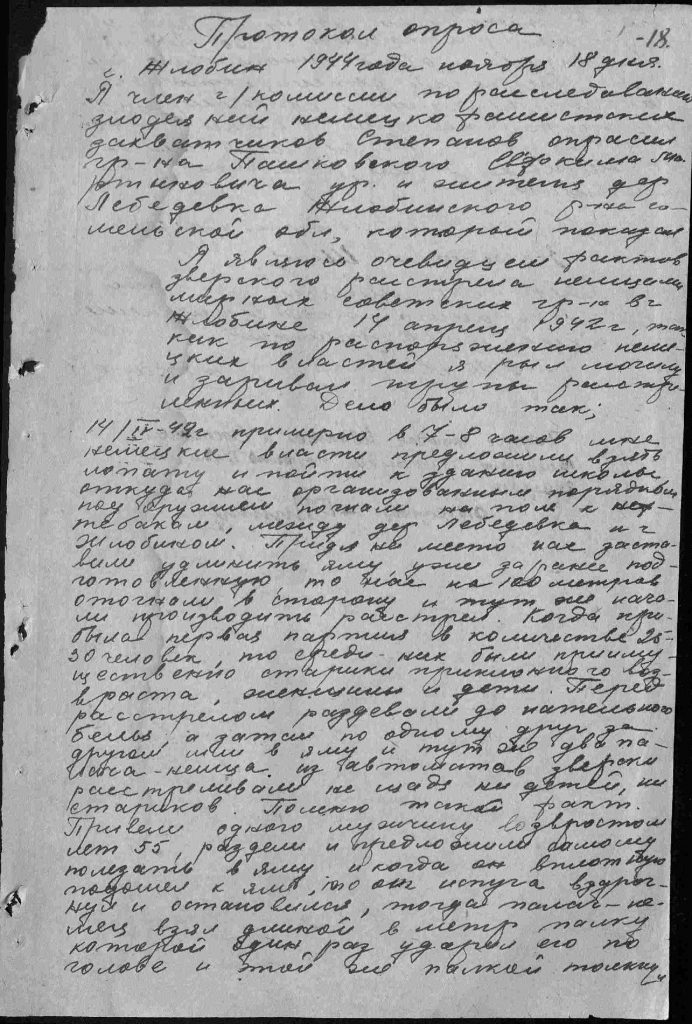 Протокол опроса
-18.
г. Жлобин 1944 года ноября 18 дня.
Я член г/комиссии по расследованию
злодеяний немецко фашистских
захватчиков Степанов опросил
гр-на Пашковского Ма-
ртыновича ур. и жителя дер
Лебедевка Жлобинского р-на Го-
мельской обл, который показал
Я являюсь очевидцем фактов
зверского расстрела немцами
мирных советских гр-н в г
Жлобине 14 апреля 1942 г, так
как по распоряжению неме-
цких властей я рыл могилу
и зарывал трупы расстре-
лянных. Дело было так;
14/IV-42г примерно в 7-8 часов мне
немецкие власти предложили взять
лопату и пойти к зданию школы
откуда нас организованным порядком
под оружием погнали на поле к
табакам, между дер Лебедевка и г
Жлобином. Придя на место нас заста-
вили удлинить яму уже заранее под-
готовленную то нас на 100 метров
отогнали в сторону и тут же нача-
ли производить расстрел. Когда при-
была первая партия в количестве 25-
30 человек, то среди них были прииму-
щественно старики приклонного воз-
враста, женщины и дети. Перед
расстрелом раздевали до нательного
белья, а затем по одному друг за
другом шли в яму и тут же два па-
лача-немца из автоматов зверски
расстреливали не щадя ни детей, ни
стариков. Помню такой факт.
Привели одного мужчину возврастом
лет 55, раздели и предложили самому
полезать в яму и когда он вплотную
подошел к яме, то он с испуга вздрог-
нул и остановился, тогда палач-не-
мец взял длиной в метр палку
которой один раз ударил его по
голове и этой же палкой толкнул